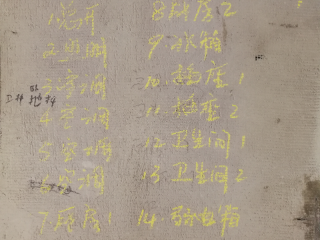 1 总开
2 照明
3 空调
4 空调
5 空调
6 空调
7 厨房1
8 厨房2
9 冰箱
10 插座1
11 插座2
12 卫生间1
13 卫生间2
14